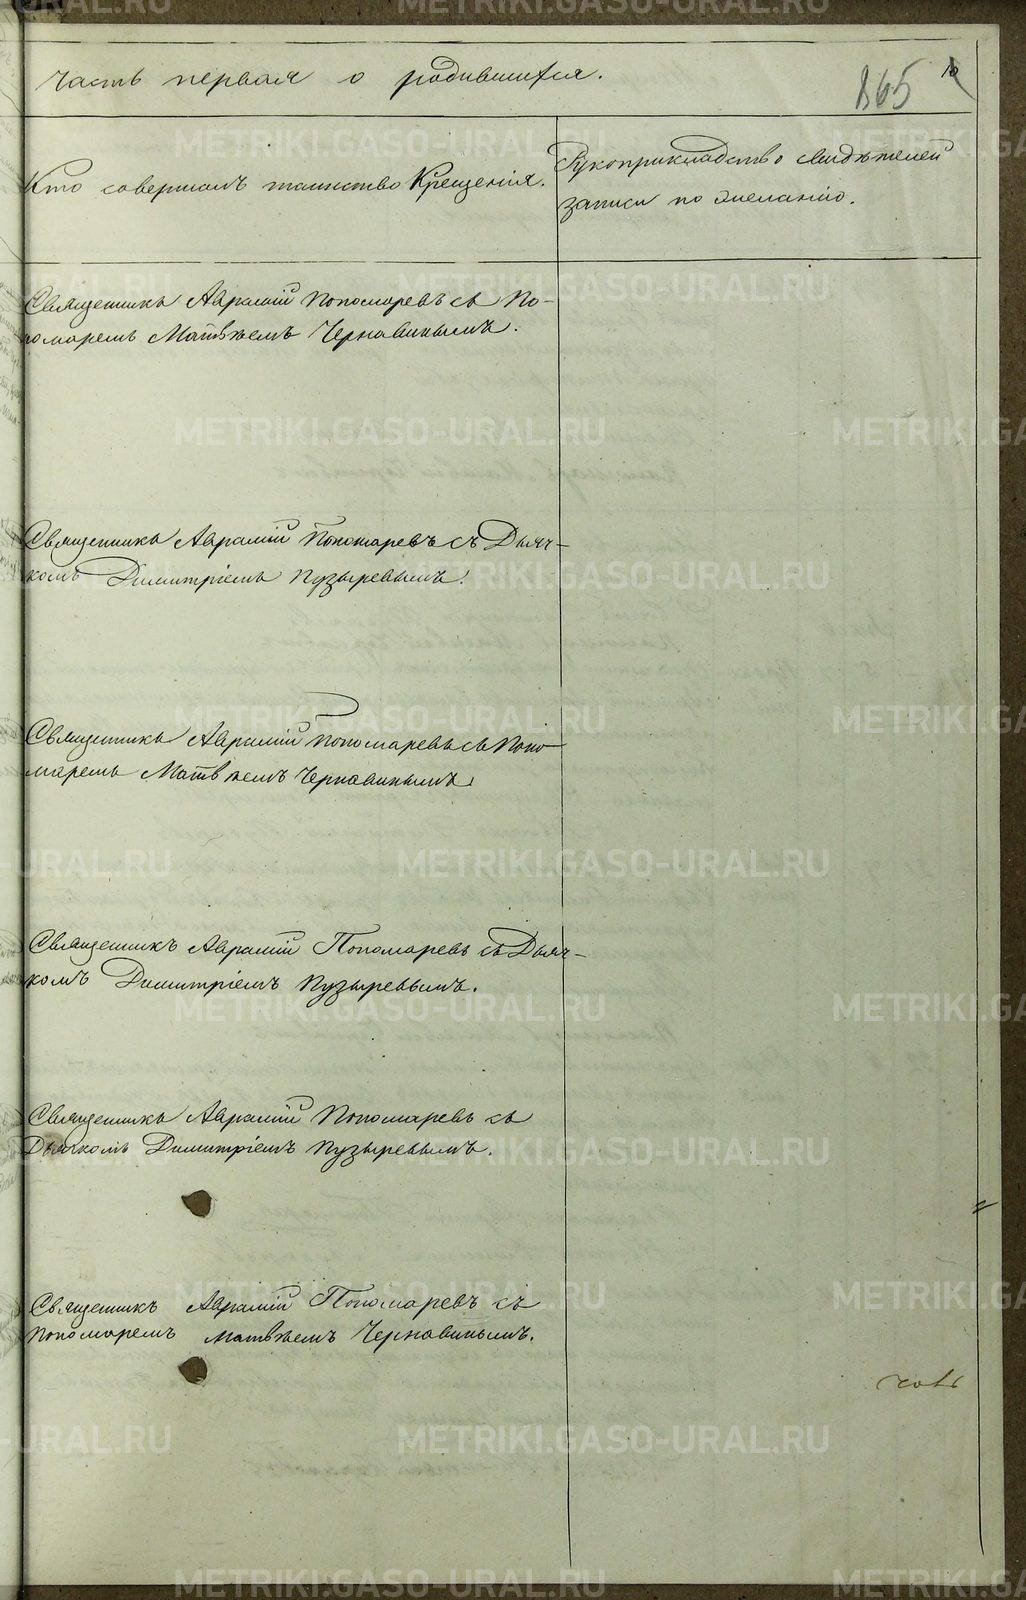 часть первая о родившихся.
865
Кто совершалъ таинство Крещенія.
Рукоприкладство свидѣтелей
записи по желанію.
Священникъ Аврамій Пономаревъ съ По-
номаремъ Матвѣемъ Чернавинымъ.
Священникъ Аврамій Пономаревъ съ Дьяч-
комъ Димитріемъ Пузыревымъ.
Священникъ Аврамій Пономаревъ съ Поно-
маремъ Матвѣемъ Чернавинымъ.
Священникъ Аврамій Пономаревъ съ Дьяч-
комъ Димитріемъ Пузыревымъ.
Священникъ Аврамій Пономаревъ съ
Дьячкомъ Димитріемъ Пузыревымъ.
Священникъ Аврамій Пономаревъ съ
Пономаремъ Матвѣемъ Чернавинымъ.
METRIKI.GASO-URAL.RU